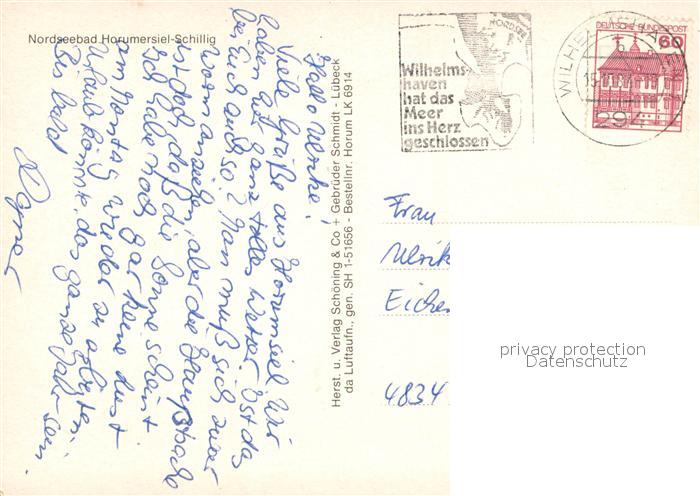 Nordseebad Horumersiel-Schillig
Hallo Ulrike!
Viele Grüße aus Horumsiel. Wir
haben hier ganz tolles Wetter. Ist das
bei Euch auch so? Man muß sich zwar
warm anziehen, aber die Hauptsache
ist doch, daß die Sonne scheint.
Ich habe noch gar keine Lust
am Montag wieder zu arbeiten.
Urlaub könnte das ganze Jahr sein.
Bis bald
Herst. u. Verlag Schöning & Co + Gebrüder Schmidt - Lübeck
da Luftaufn., gen. SH 1-51656 - Bestellnr. Horum LK 6914
NORDSEE
Wilhelms-
haven
hat das
Meer
ins Herz
geschlossen
WILHELMSHAVEN
294
DEUTSCHE BUNDESPOST
60
Frau
Ulrik
Eichen
4834
privacy protection
Datenschutz